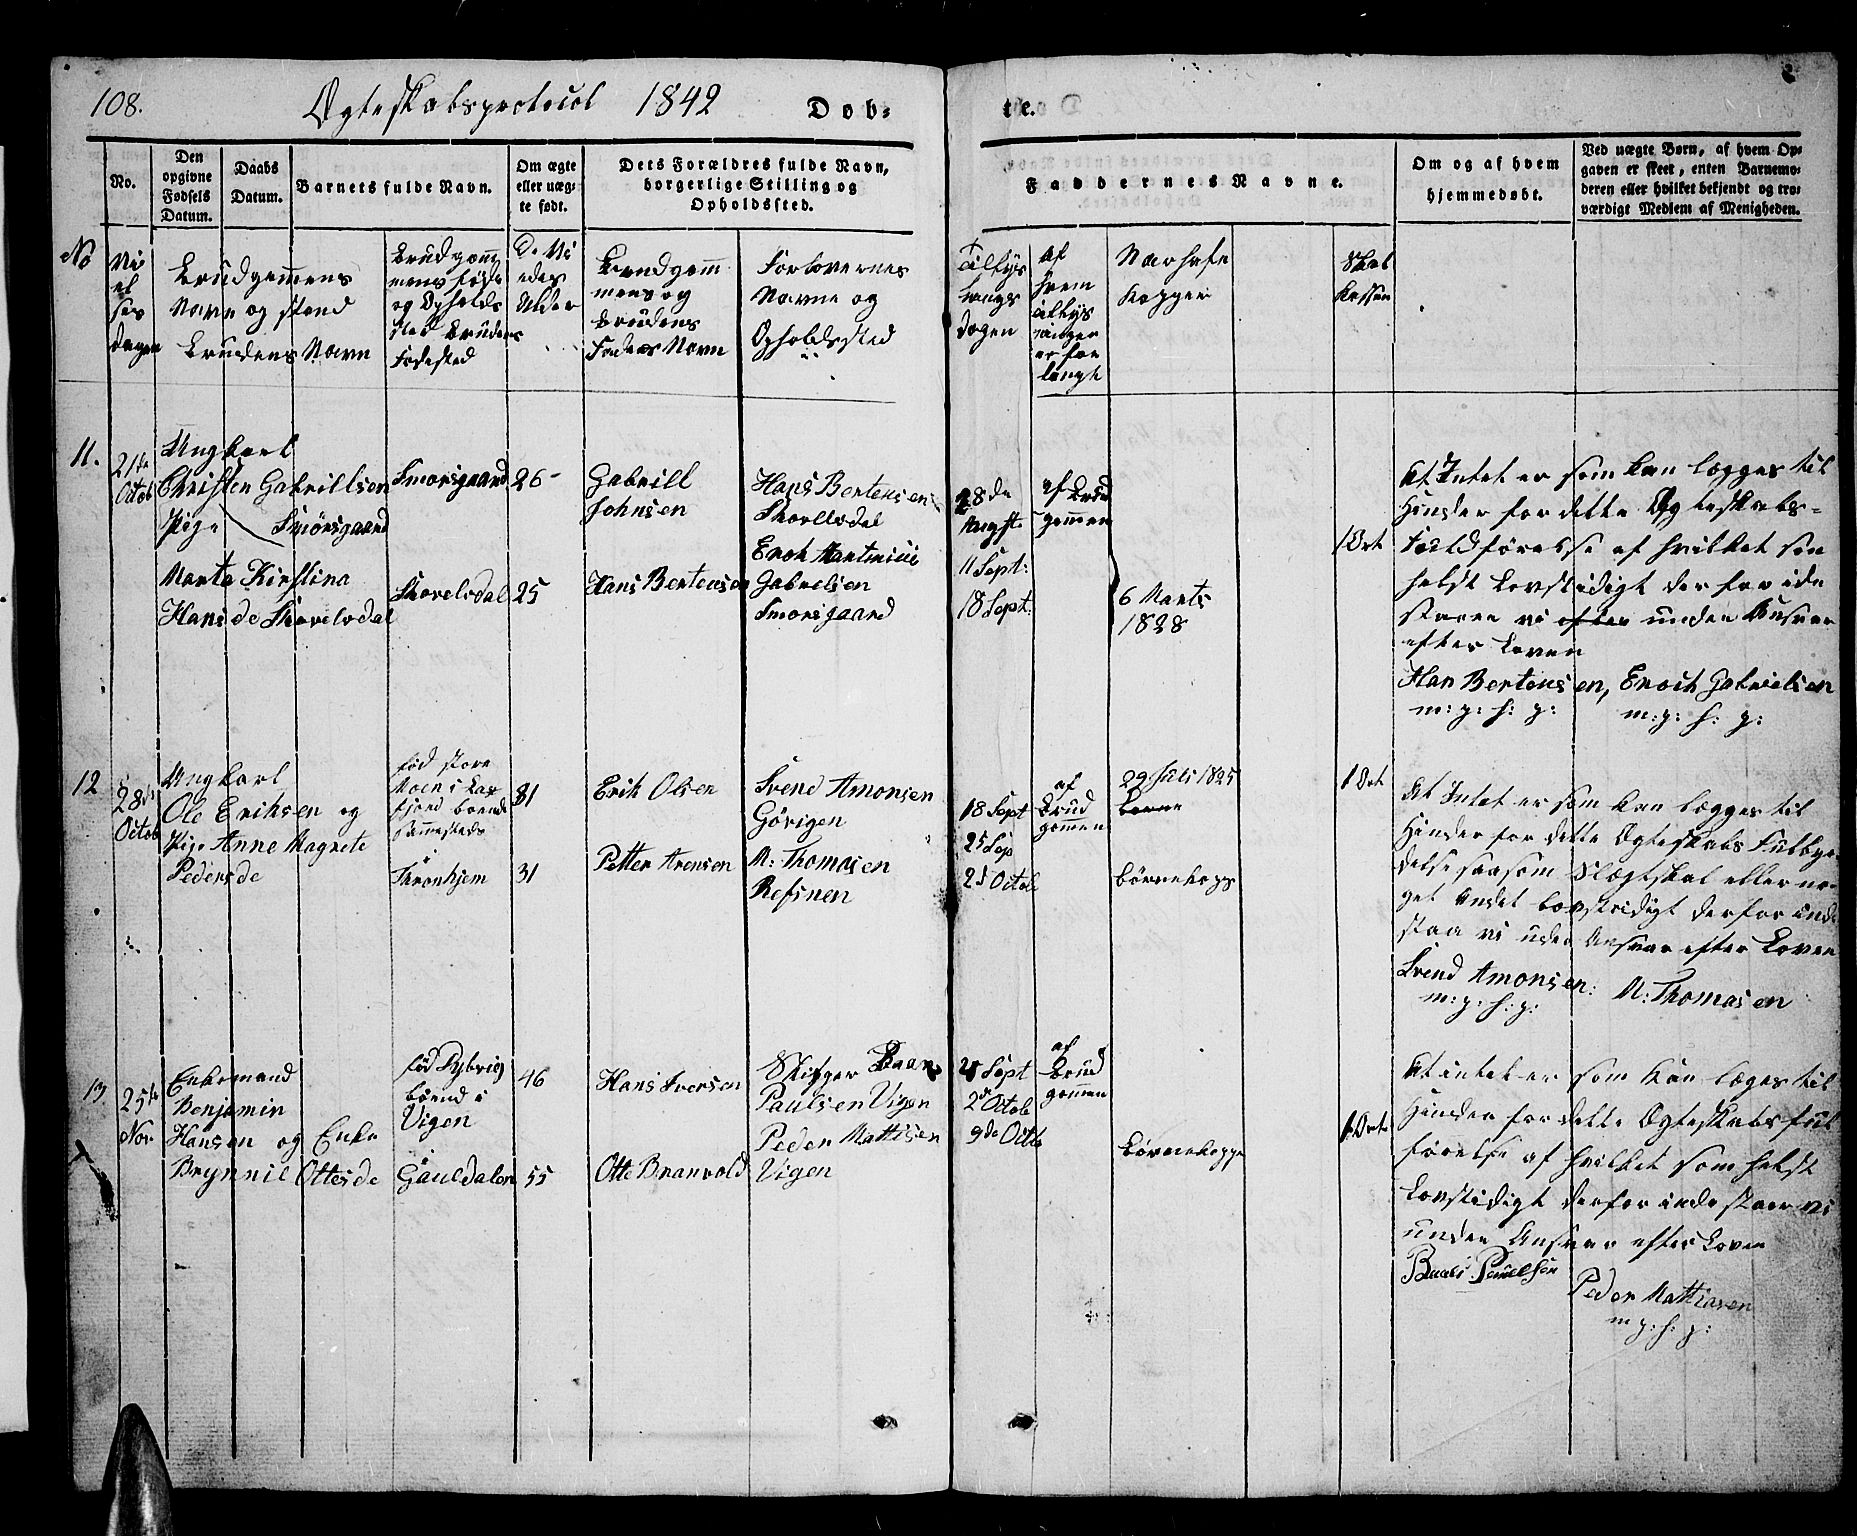 108. Ægteskabsprotocol 1842 Døb- te.
No.
Den
opgivne
Fødsels
Datum.
Daabs
Datum.
Barnets fulde Navn.
Om ægte
eller uæg-
te født.
Dets Forældres fulde Navn,
borgerlige Stilling og
Opholdssted.
Faddernes Navne.
Om og af hvem
hjemmedøbt.
Ved uægte Børn, af hvem Op-
gaven er skeet, enten Barnemo-
deren eller hvilket bekjendt og tro-
værdigt Medlem af Menigheden.
No
Vi
el
ses
dagen
Brudgommens
Navn og Stand
Brudens Navn
Brudgom
mens føde
og Opholds
sted Brudens
Fødested
De Vi
edes
Alder
Brudgom
mens og
Brudens
Faders Navn
Forlovernes
Navne og
Opholdssted
Tillys
nings
dagen
Af
hvem
Tillys
ninger
er for
langt
Naar hafte
Kopper
11.
21de
Octob
Ungkarl
Christen Gabrillsen
Pige Smörsgaard
Marta Kirstina
Hansde Skorelvdal
Smorsgaard
Skorelvdal
26
25
Gabrill
Johnsen
Hans Bertensen
Hans Bertensen
Skorelvdal
Enoch Martinius
Gabrielsen
Smorsgaard
28de
Augst
11 Sept:
18 Sept:
af Brud
gommen
6 Marts
1828
1 Ort
At Intet er som kan lægges til
Hinder for dette Ægteskabs-
Fuldførelse af hvilket som
helst Lovstridigt derfor inde
staaer vi efter under Ansvar
efter Loven
Han Bertensen, Enoch Gabrielsen
m: p: h: p: m: p: h: p:
12
28de
Octob
Ungkarl
Ole Eriksen og
Pige Anne Magrete
Pedersde
fød store
Moen i
fjord boende
sammesteds
Thronhjem
31
31
Erik Olsen
Petter Arensen
Svend Amonsen
Görigen
M: Thomasen
Refsnen
18 Sept
25 Sep
2d Octob
af
Brud
gommen
29 Juli 1825
börnekops
1 Ort
At Intet er som kan lægges til
Hinder for dette Ægteskabs Fulbyr
delse saasom Slægtskab eller no-
get Andet lovstridigt derfor inde
staa vi under Ansvar efter Loven
Svend Amonsen: M: Thomasen
m: p: h: p:
13
25de
Nov
Enkemand
Benjamin
Hansen og Enke
Brynnil Ottesde
fød Dybvig
boend i
Vigen
Gauldalen
46
55
Hans Iversen
Otte Branvold
Skifger Baar
Paulsen Vigen
Peder Mattisen
Vigen
25 Sept
2de Octob
9de Octb
af
Brud
gommen
Börnekopper
1 Ort
At intet er som kan læges til
Hinder for dette Ægteskabs ful
førelse af hvilket som helst
Lovstidigt derfor inde staaer vi
under Ansvar efter Loven
Baars Poulsen
Peder Mattiasen
m: p: h: p: